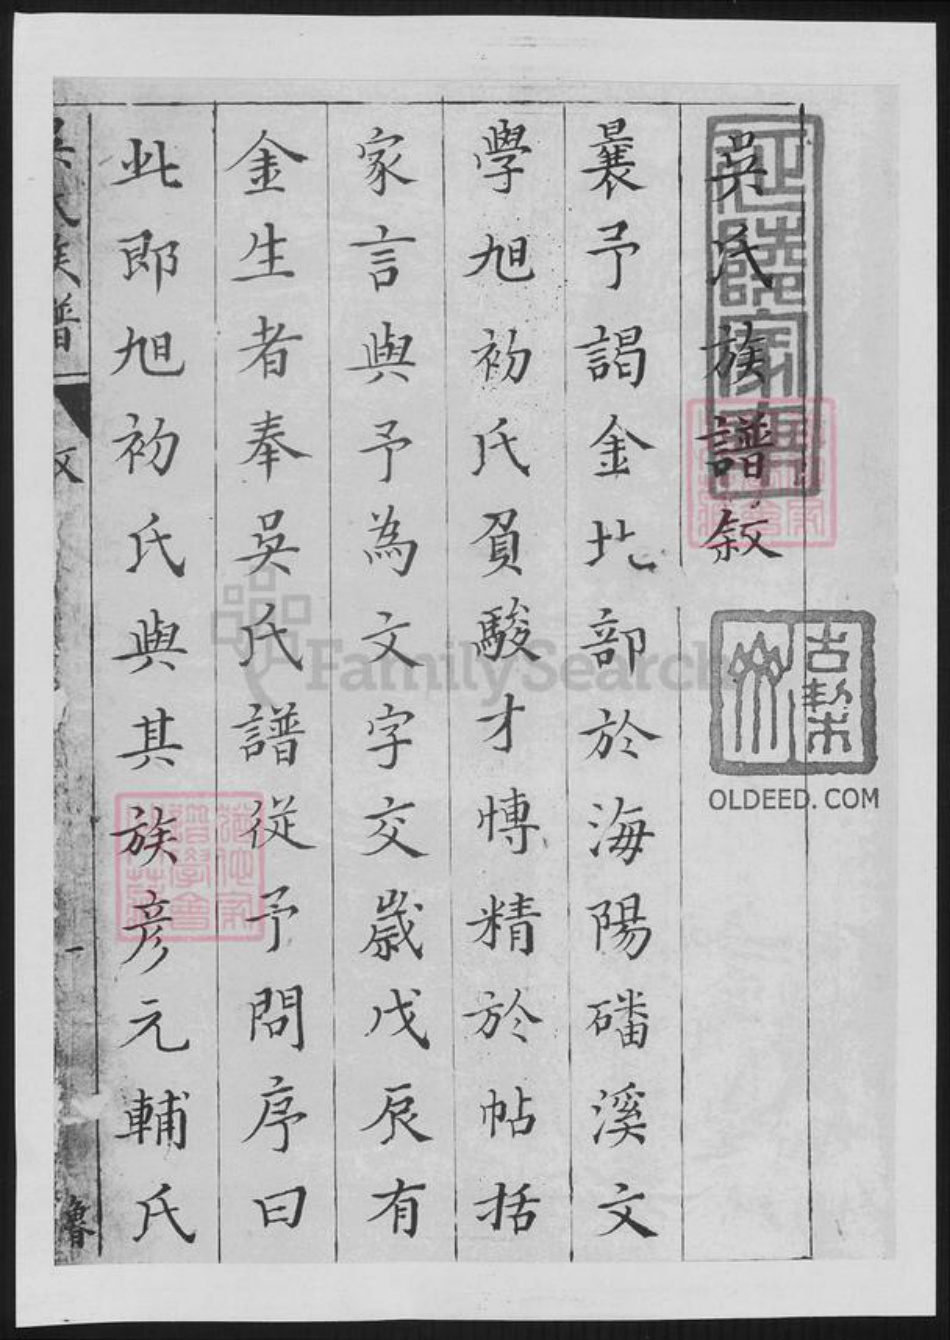 吳氏族譜敘
曩予謁金北部於海陽磻溪文
學旭初氏負駿才慱精於帖括
家言與予為文字交歲戊辰有
金生者奉吳氏譜從予問序曰
此即旭初氏與其族彥元輔氏
吳氏族譜
一
延陵家寶
古黎
OLDEED.COM
FamilySearch